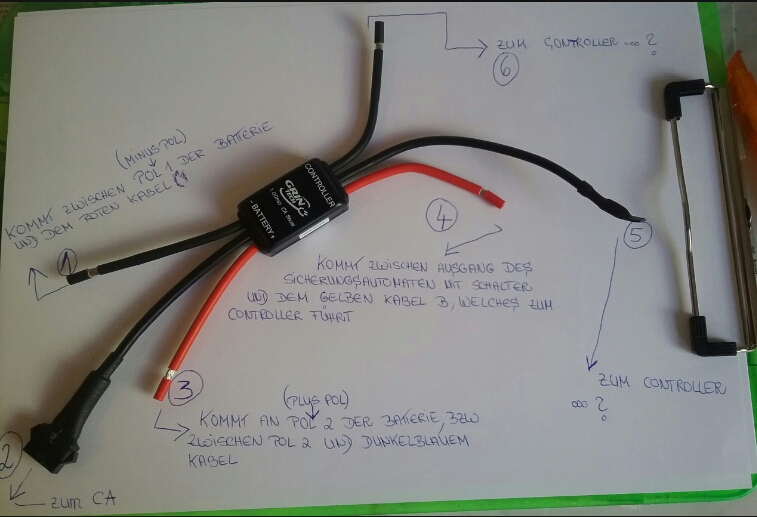 ZUM CONTROLLER ...?
6
(MINUSPOL)
KOMMT ZWISCHEN POL 1 DER BATTERIE
UND DEM ROTEN KABEL
1
CONTROLLER
GRIN
TECH
- BATTERY +
4
KOMMT ZWISCHEN AUSGANG DES
SICHERUNGSAUTOMATEN MIT SCHALTER
UND DEM GELBEN KABEL B, WELCHES ZUM
CONTROLLER FÜHRT
5
ZUM CONTROLLER
...?
3
(PLUSPOL)
KOMMT AN POL 2 DER BATTERIE, BZW
ZWISCHEN POL 2 UND DUNKELBLAUEM
KABEL
2
ZUM CA